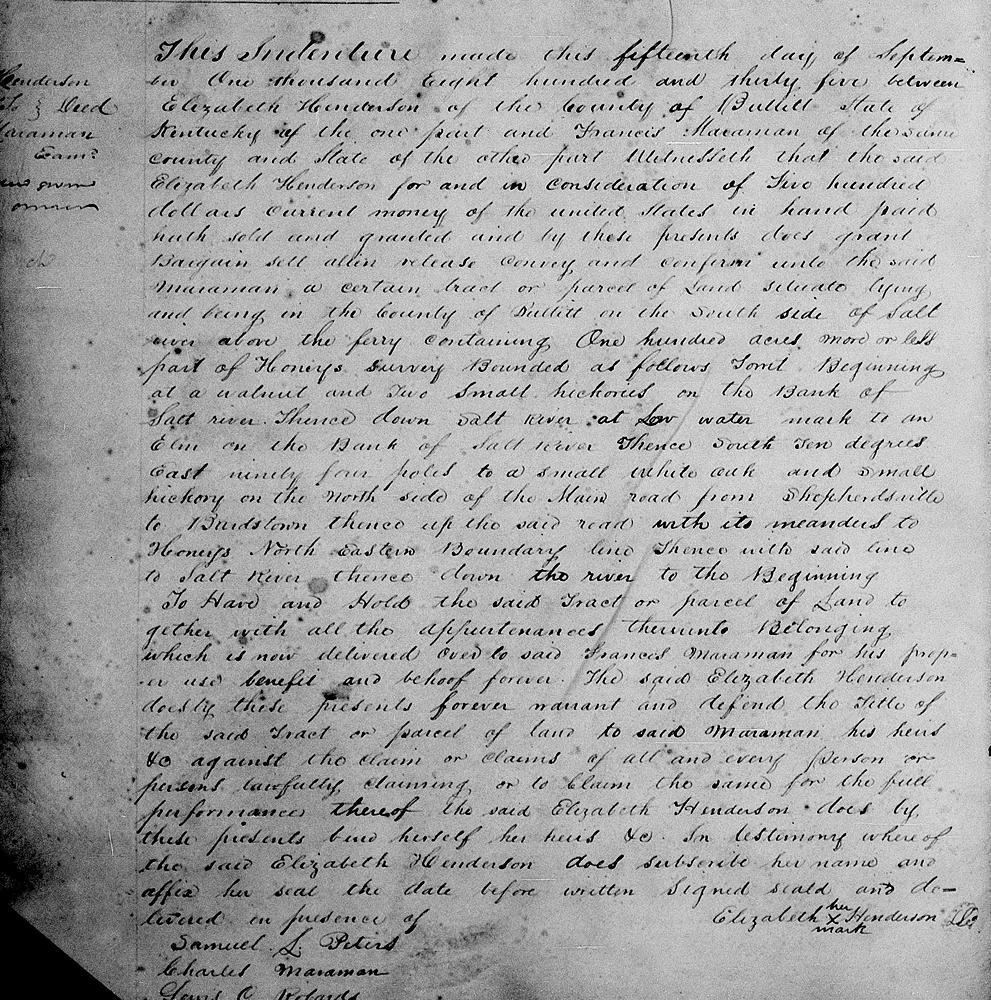 Henderson
To } Deed
Maraman
Exam.d
This Indenture made this fifteenth day of Septem=
ber One thousand Eight hundred and thirty five between
Elizabeth Henderson of the County of Bullitt State of
Kentucky of the one part and Francis Maraman of the same
County and State of the other part Witnesseth that the said
Elizabeth Henderson for and in consideration of Five hundred
dollars current money of the united States in hand paid
hath sold and granted and by these presents does grant
Bargain sell alien release Convey and confirm unto the said
Maraman a certain tract or parcel of Land situate lying
and being in the County of Bullitt on the South side of Salt
river above the ferry containing One hundred acres more or less
part of Honeys Survey Bounded as follows Towit Beginning
at a walnut and Two Small hickories on the Bank of
Salt river Thence down Salt River at Low water mark to an
Elm on the Bank of Salt River Thence South Ten degrees
East ninety four poles to a small White oak and Small
hickory on the North side of the Main road from Shepherdsville
to Bardstown thence up the said road with its meanders to
Honeys North Eastern Boundary line Thence with said line
to Salt River thence down the river to the Beginning
To Have and Hold the said Tract or parcel of Land to
gether with all the appurtenances thereunto Belonging
which is now delivered over to said Francis Maraman for his prop=
er use benefit and behoof forever. The said Elizabeth Henderson
does by these presents forever warrant and defend the Title of
the said Tract or parcel of land to said Maraman his heirs
&c against the claim or claims of all and every person or
persons lawfully claiming or to Claim the same for the full
performance thereof the said Elizabeth Henderson does by
these presents bind herself her heirs &c. In testimony whereof
the said Elizabeth Henderson does subscribe her name and
affix her seal the date before written Signed seald and de=
livered in presence of
Elizabeth her X mark Henderson
Samuel L. Peters
Charles Maraman
Lewis C Robards